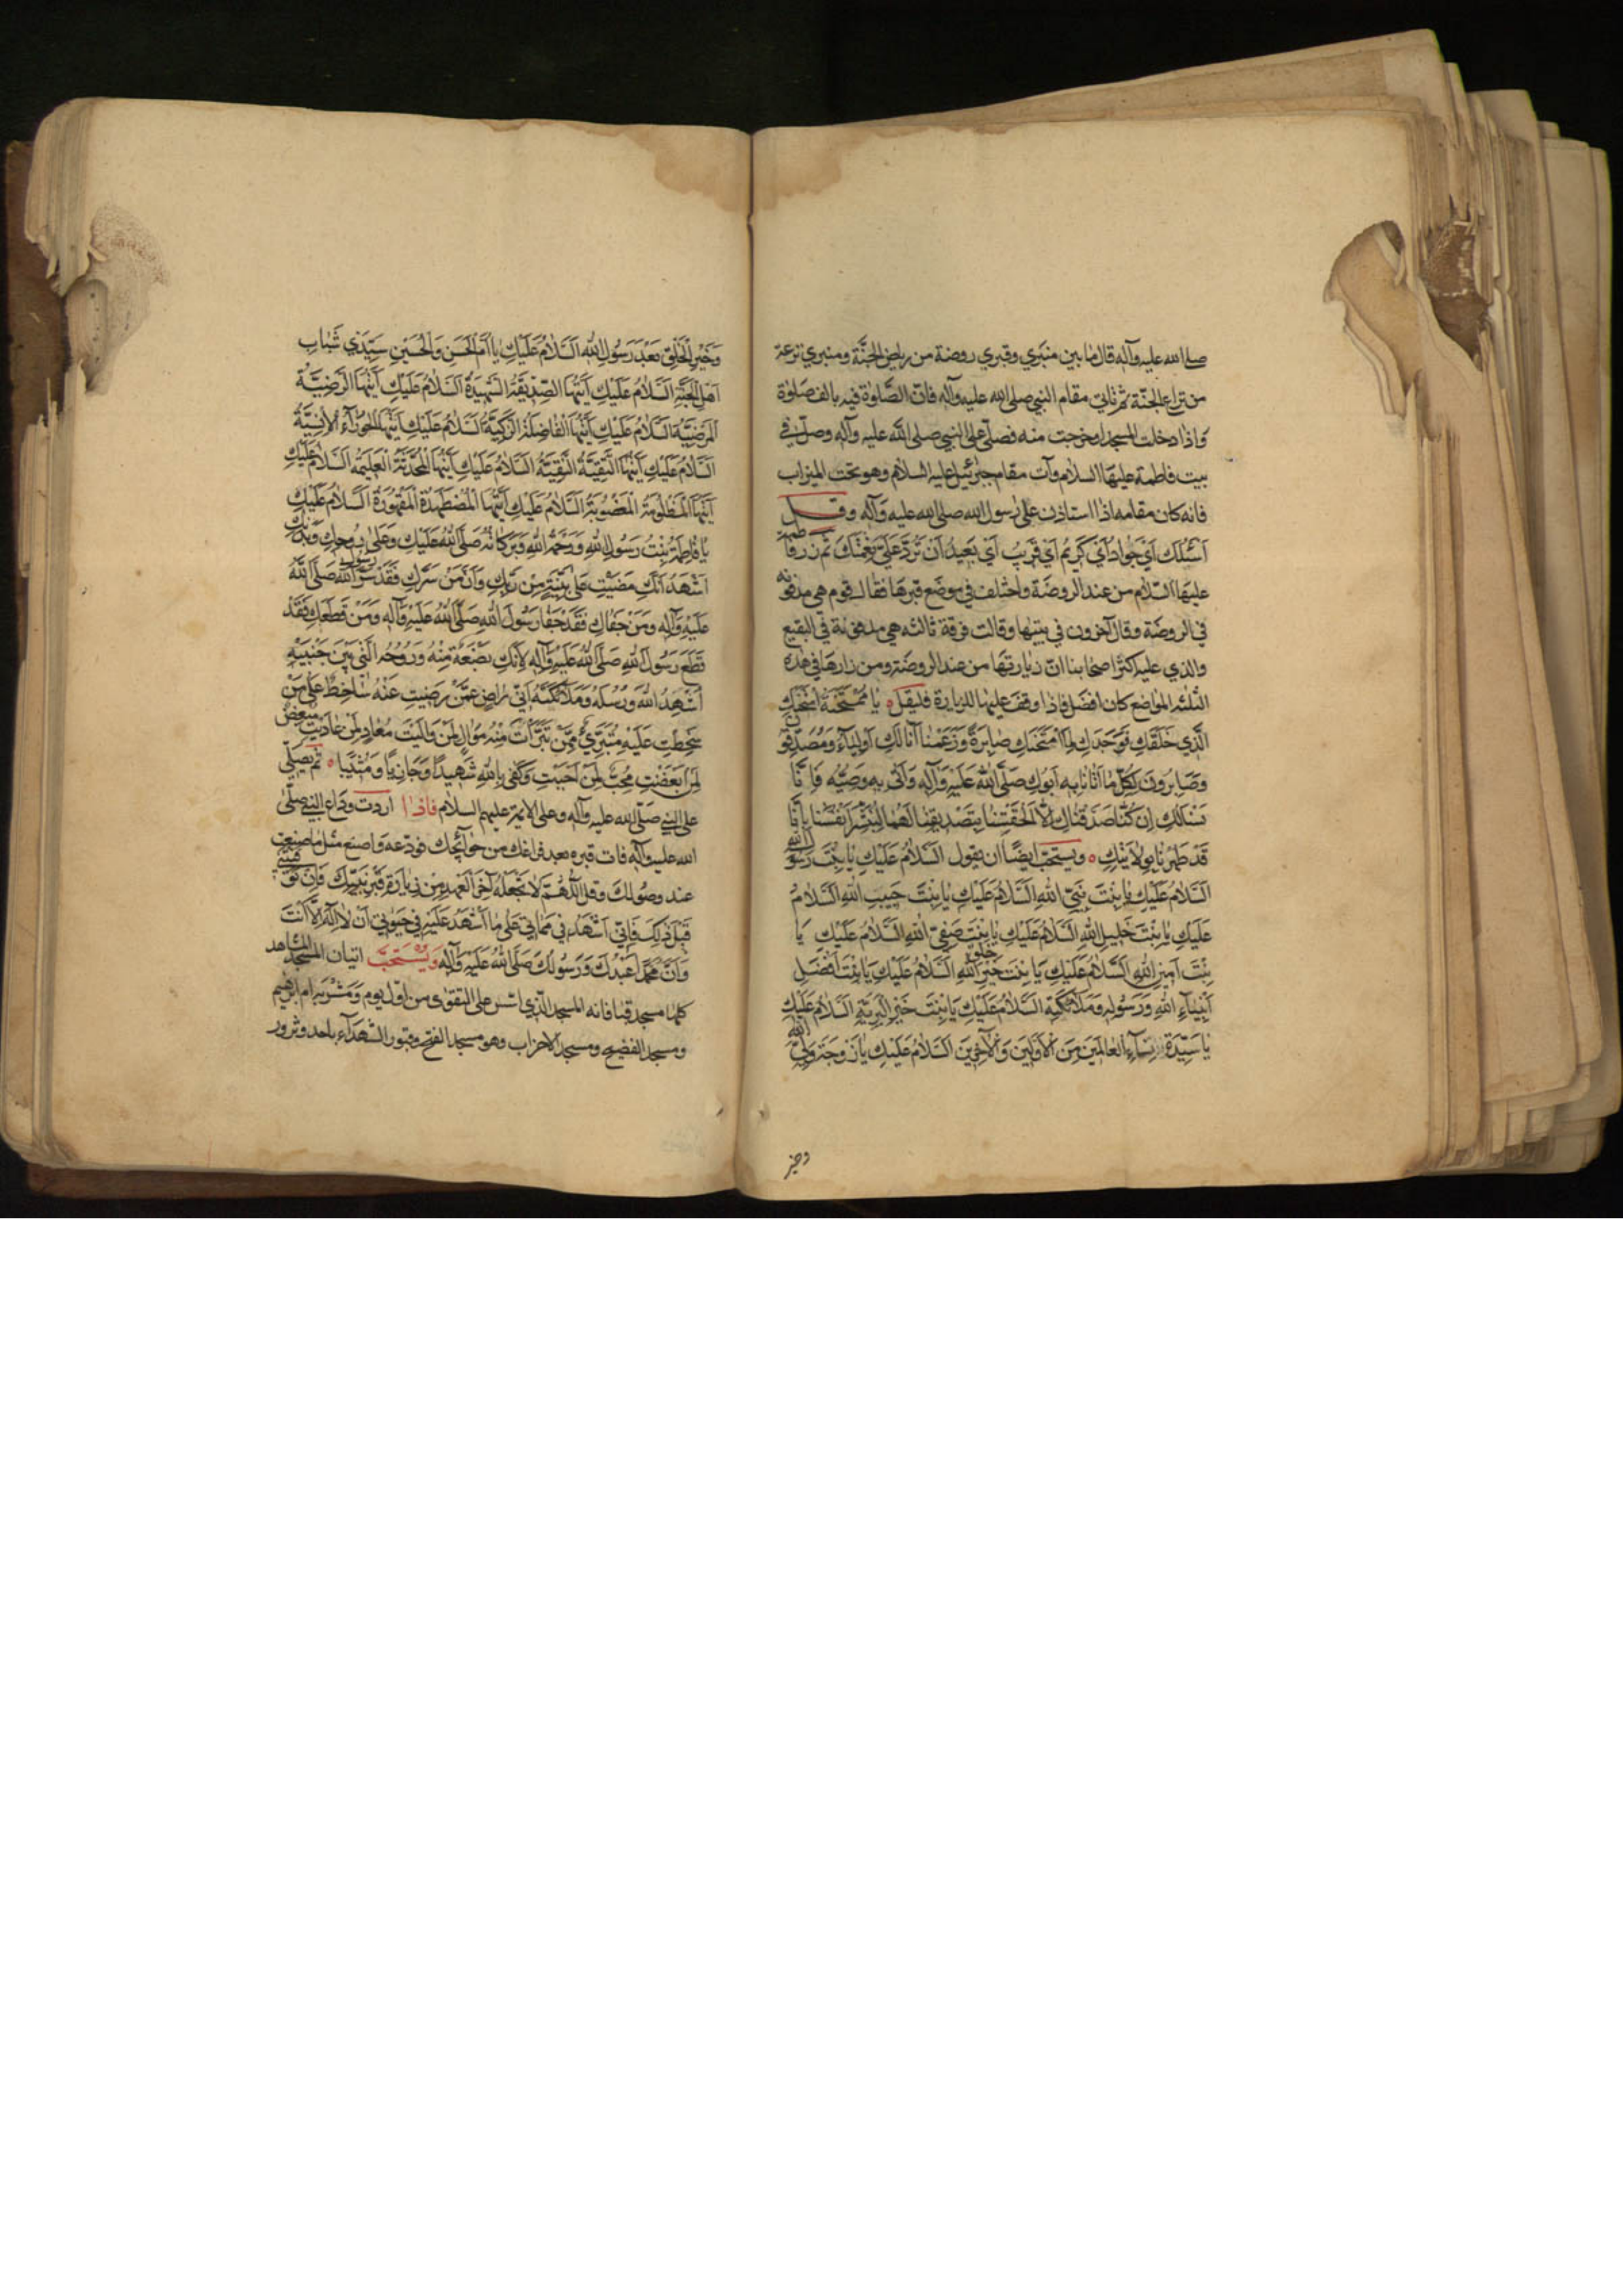 صلى الله عليه وآله قال ما بين منبري وقبري روضة من رياض الجنّة ومنبري ترعة
من تراع الجنّة ثم تاتي مقام النبي صلى الله عليه وآله فانّ الصّلوة فيه بالف صلوة
واذا دخلت المسجد او خرجت منه فصلّ على النبي صلى الله عليه وآله وصلّ في
بيت فاطمة عليها السلام وآت مقام جبرئيل عليه السلام وهو تحت الميزاب
فانه كان مقامه اذا استاذن على رسول الله صلى الله عليه وآله وقل
اَسْئَلُكَ اَيْ جَوادُ اَيْ كَريمُ اَيْ قَريبُ اَيْ بَعيدُ اَنْ تَرُدَّ عَلَيَّ نِعْمَتَكَ ثم زر فاطمة
عليها السّلام من عند الروضة واختلف في موضع قبرها فقال قوم هي مدفونة
في الروضة وقال آخرون في بيتها وقالت فرقة ثالثة هي مدفونة في البقيع
والذي عليه اكثر اصحابنا انّ زيارتها من عند الروضة ومن زارها في هذه
الثلثه المواضع كان افضل فاذا وقف عليها للزيارة فليقل ٥ يا مُمْتَحَنَةُ امْتَحَنَكِ
الَّذي خَلَقَكِ فَوَجَدَكِ لِمَا امْتَحَنَكِ صابِرَةً وَزَعَمْنا اَنّا لَكِ اَوْلِياءُ وَمُصَدِّقُونَ
وَصابِرُونَ لِكُلِّ ما اَتانا بِهِ اَبُوكِ صَلَّى اللهُ عَلَيْهِ وَآلِهِ وَاَتى بِهِ وَصِيُّهُ فَاِنّا
نَسْئَلُكِ اِنْ كُنّا صَدَّقْناكِ اِلّا اَلْحَقْتِنا بِتَصْديقِنا لَهُما لِنُبَشِّرَ اَنْفُسَنا بِاَنّا
قَدْ طَهُرْنا بِوِلايَتِكِ ٥ ويستحبّ ايضًا ان يقول السَّلامُ عَلَيْكِ يا بِنْتَ رَسُولِ اللهِ
السَّلامُ عَلَيْكِ يا بِنْتَ نَبِيِّ اللهِ السَّلامُ عَلَيْكِ يا بِنْتَ حَبيبِ اللهِ السَّلامُ
عَلَيْكِ يا بِنْتَ خَليلِ اللهِ السَّلامُ عَلَيْكِ يا بِنْتَ صَفِيِّ اللهِ السَّلامُ عَلَيْكِ يا
بِنْتَ اَمينِ اللهِ السَّلامُ عَلَيْكِ يا بِنْتَ خَيْرِ خَلْقِ اللهِ السَّلامُ عَلَيْكِ يا بِنْتَ اَفْضَلِ
اَنْبِياءِ اللهِ وَرَسُولِهِ وَمَلائِكَتِهِ السَّلامُ عَلَيْكِ يا بِنْتَ خَيْرِ الْبَرِيَّةِ السَّلامُ عَلَيْكِ
يا سَيِّدَةَ نِساءِ الْعالَمينَ مِنَ الْاَوَّلينَ وَالْآخِرينَ السَّلامُ عَلَيْكِ يا زَوْجَةَ وَلِيِّ اللهِ
وخير
وَخَيْرِ الْخَلْقِ بَعْدَ رَسُولِ اللهِ السَّلامُ عَلَيْكِ يا اُمَّ الْحَسَنِ وَالْحُسَيْنِ سَيِّدَيْ شَبابِ
اَهْلِ الْجَنَّةِ السَّلامُ عَلَيْكِ اَيَّتُهَا الصِّدّيقَةُ الشَّهيدَةُ السَّلامُ عَلَيْكِ اَيَّتُهَا الرَّضِيَّةُ
الْمَرْضِيَّةُ السَّلامُ عَلَيْكِ اَيَّتُهَا الْفاضِلَةُ الزَّكِيَّةُ السَّلامُ عَلَيْكِ اَيَّتُهَا الْحَوْراءُ الْاِنْسِيَّةُ
السَّلامُ عَلَيْكِ اَيَّتُهَا التَّقِيَّةُ النَّقِيَّةُ السَّلامُ عَلَيْكِ اَيَّتُهَا الْمُحَدَّثَةُ الْعَليمَةُ السَّلامُ عَلَيْكِ
اَيَّتُهَا الْمَظْلُومَةُ الْمَغْصُوبَةُ السَّلامُ عَلَيْكِ اَيَّتُهَا الْمُضْطَهَدَةُ الْمَقْهُورَةُ السَّلامُ عَلَيْكِ
يا فاطِمَةُ بِنْتَ رَسُولِ اللهِ وَرَحْمَةُ اللهِ وَبَرَكاتُهُ صَلَّى اللهُ عَلَيْكِ وَعَلى رُوحِكِ وَبَدَنِكِ
اَشْهَدُ اَنَّكِ مَضَيْتِ عَلى بَيِّنَةٍ مِنْ رَبِّكِ وَاَنَّ مَنْ سَرَّكِ فَقَدْ سَرَّ رَسُولَ اللهِ صَلَّى اللهُ
عَلَيْهِ وَآلِهِ وَمَنْ جَفاكِ فَقَدْ جَفا رَسُولَ اللهِ صَلَّى اللهُ عَلَيْهِ وَآلِهِ وَمَنْ قَطَعَكِ فَقَدْ
قَطَعَ رَسُولَ اللهِ صَلَّى اللهُ عَلَيْهِ وَآلِهِ لِاَنَّكِ بَضْعَةٌ مِنْهُ وَرُوحُهُ الَّتي بَيْنَ جَنْبَيْهِ
اُشْهِدُ اللهَ وَرُسُلَهُ وَمَلائِكَتَهُ اَنّي راضٍ عَمَّنْ رَضيتِ عَنْهُ ساخِطٌ عَلى مَنْ
سَخِطْتِ عَلَيْهِ مُتَبَرِّئٌ مِمَّنْ تَبَرَّأْتِ مِنْهُ مُوالٍ لِمَنْ والَيْتِ مُعادٍ لِمَنْ عادَيْتِ مُبْغِضٌ
لِمَنْ اَبْغَضْتِ مُحِبٌّ لِمَنْ اَحْبَبْتِ وَكَفى بِاللهِ شَهيدًا وَجازِيًا وَمُثيبًا ٥ ثم يصلّي
على النبي صلّى الله عليه وآله وعلى الائمة عليهم السلام فاذا اردت وداع النبي صلّى
الله عليه وآله فات قبره بعد فراغك من حوائجك فودّعه واصنع مثل ما صنعت
عند وصولك وقل اَللّهُمَّ لا تَجْعَلْهُ آخِرَ الْعَهْدِ مِنْ زِيارَةِ قَبْرِ نَبِيِّكَ فَاِنْ تَوَفَّيْتَني
قَبْلَ ذلِكَ فَاِنّي اَشْهَدُ في مَماتي عَلى ما اَشْهَدُ عَلَيْهِ في حَيوتي اَنْ لا اِلهَ اِلّا اَنْتَ
وَاَنَّ مُحَمَّدًا عَبْدُكَ وَرَسُولُكَ صَلَّى اللهُ عَلَيْهِ وَآلِهِ وَيُسْتَحَبُّ اتيان المشاهد
كلها مسجد قبا فانه المسجد الّذي اسّس على التقوى من اوّل يوم ومشربة ام ابرهيم
ومسجد الفضيخ ومسجد الاحزاب وهو مسجد الفتح وقبور الشهداء باحد وتزور